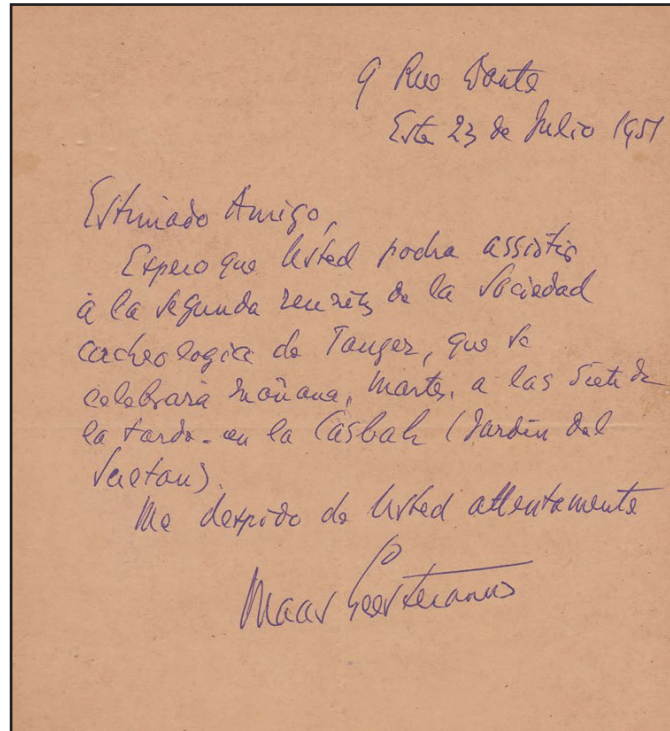 9 Rue Dante
Este 23 de Julio 1951
Estimado Amigo,
Espero que Usted podra assistir
à la segunda reunión de la Sociedad
archeologica de Tanger, que se
celebrará mañana, Martes, a las siete de
la tarde en la Casbah (Jardin del
Sultan).
Me despido de Usted attentamente
Maas Geesteranus